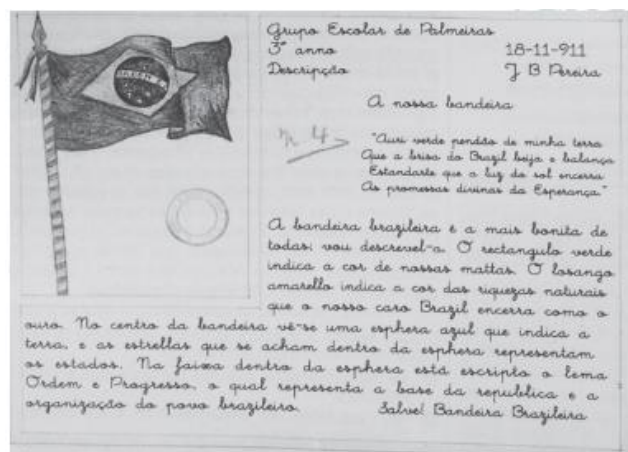 Grupo Escolar de Palmeiras
3º anno 18-11-911
Descripção J B Pereira
A nossa bandeira
"Auri verde pendão de minha terra
Que a brisa do Brazil beija e balança
Estandarte que a luz do sol encerra
As promessas divinas da Esperança."
A bandeira brazileira e a mais bonita de
todas; vou descrevel-a. O rectangulo verde
indica a cor de nossas mattas. O losango
amarello indica a cor das riquezas naturais
que o nosso caro Brazil encerra como o
ouro. No centro da bandeira vê-se uma esphera azul que indica a
terra, e as estrellas que se acham dentro da esphera representam
os estados. Na faixa dentro da esphera está escripto o lema
Ordem e Progresso, o qual representa a base da republica e a
organização do povo brazileiro. Salve! Bandeira Brazileira